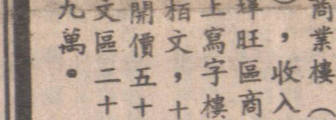 商業樓（
，收入
埠旺區商
上寫字樓
栢文，十
開價五十
文區二十
九萬。